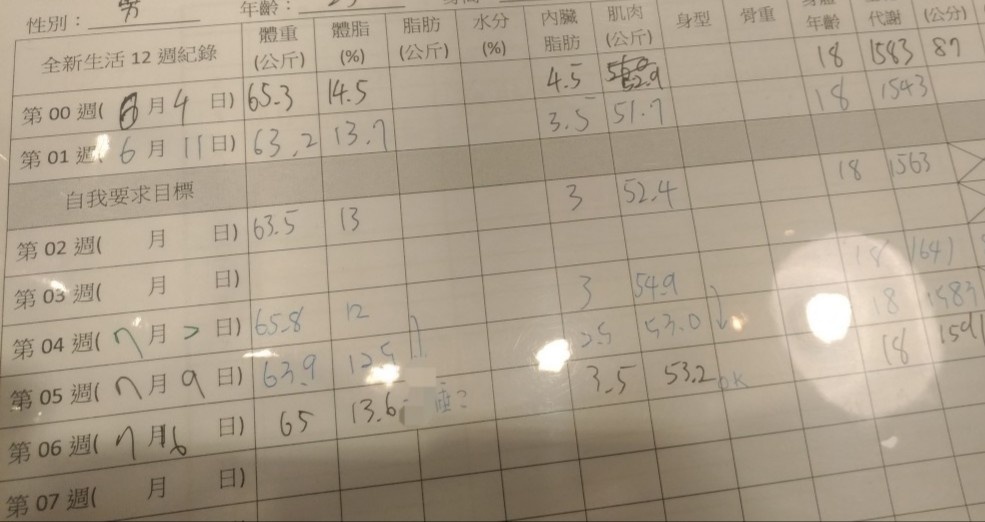 性別： 男 年齡：
全新生活 12 週紀錄 體重 (公斤) 體脂 (%) 脂肪 (公斤) 水分 (%) 內臟 脂肪 肌肉 (公斤) 身型 骨重 年齡 代謝 (公分)
第 00 週( 6 月 4 日) 65.3 14.5 4.5 52.9 18 1583 87
第 01 週( 6 月 11 日) 63.2 13.7 3.5 51.7 18 1543
自我要求目標
第 02 週( 月 日) 63.5 13 3 52.4 18 1563
第 03 週( 月 日)
第 04 週( 7 月 2 日) 65.8 12 3 54.9 18 1641
第 05 週( 7 月 9 日) 63.9 12.5 2.5 53.0 18 1583
第 06 週( 7 月 16 日) 65 13.6 睡? 3.5 53.2 OK 18 1591
第 07 週( 月 日)